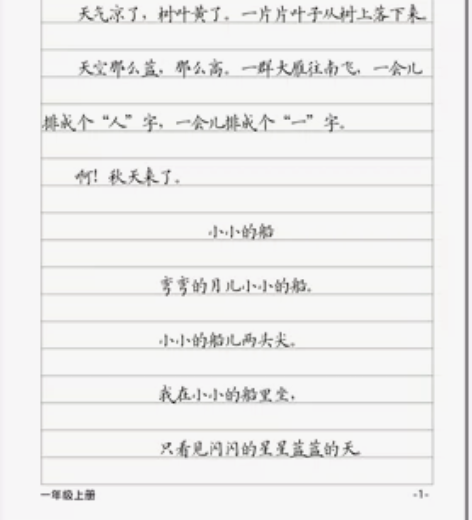 天气凉了，树叶黄了。一片片叶子从树上落下来
天空那么蓝，那么高。一群大雁往南飞，一会儿
排成个“人”字，一会儿排成个“一”字。
啊！秋天来了。
小小的船
弯弯的月儿小小的船。
小小的船儿两头尖。
我在小小的船里坐，
只看见闪闪的星星蓝蓝的天
一年级上册
-1-